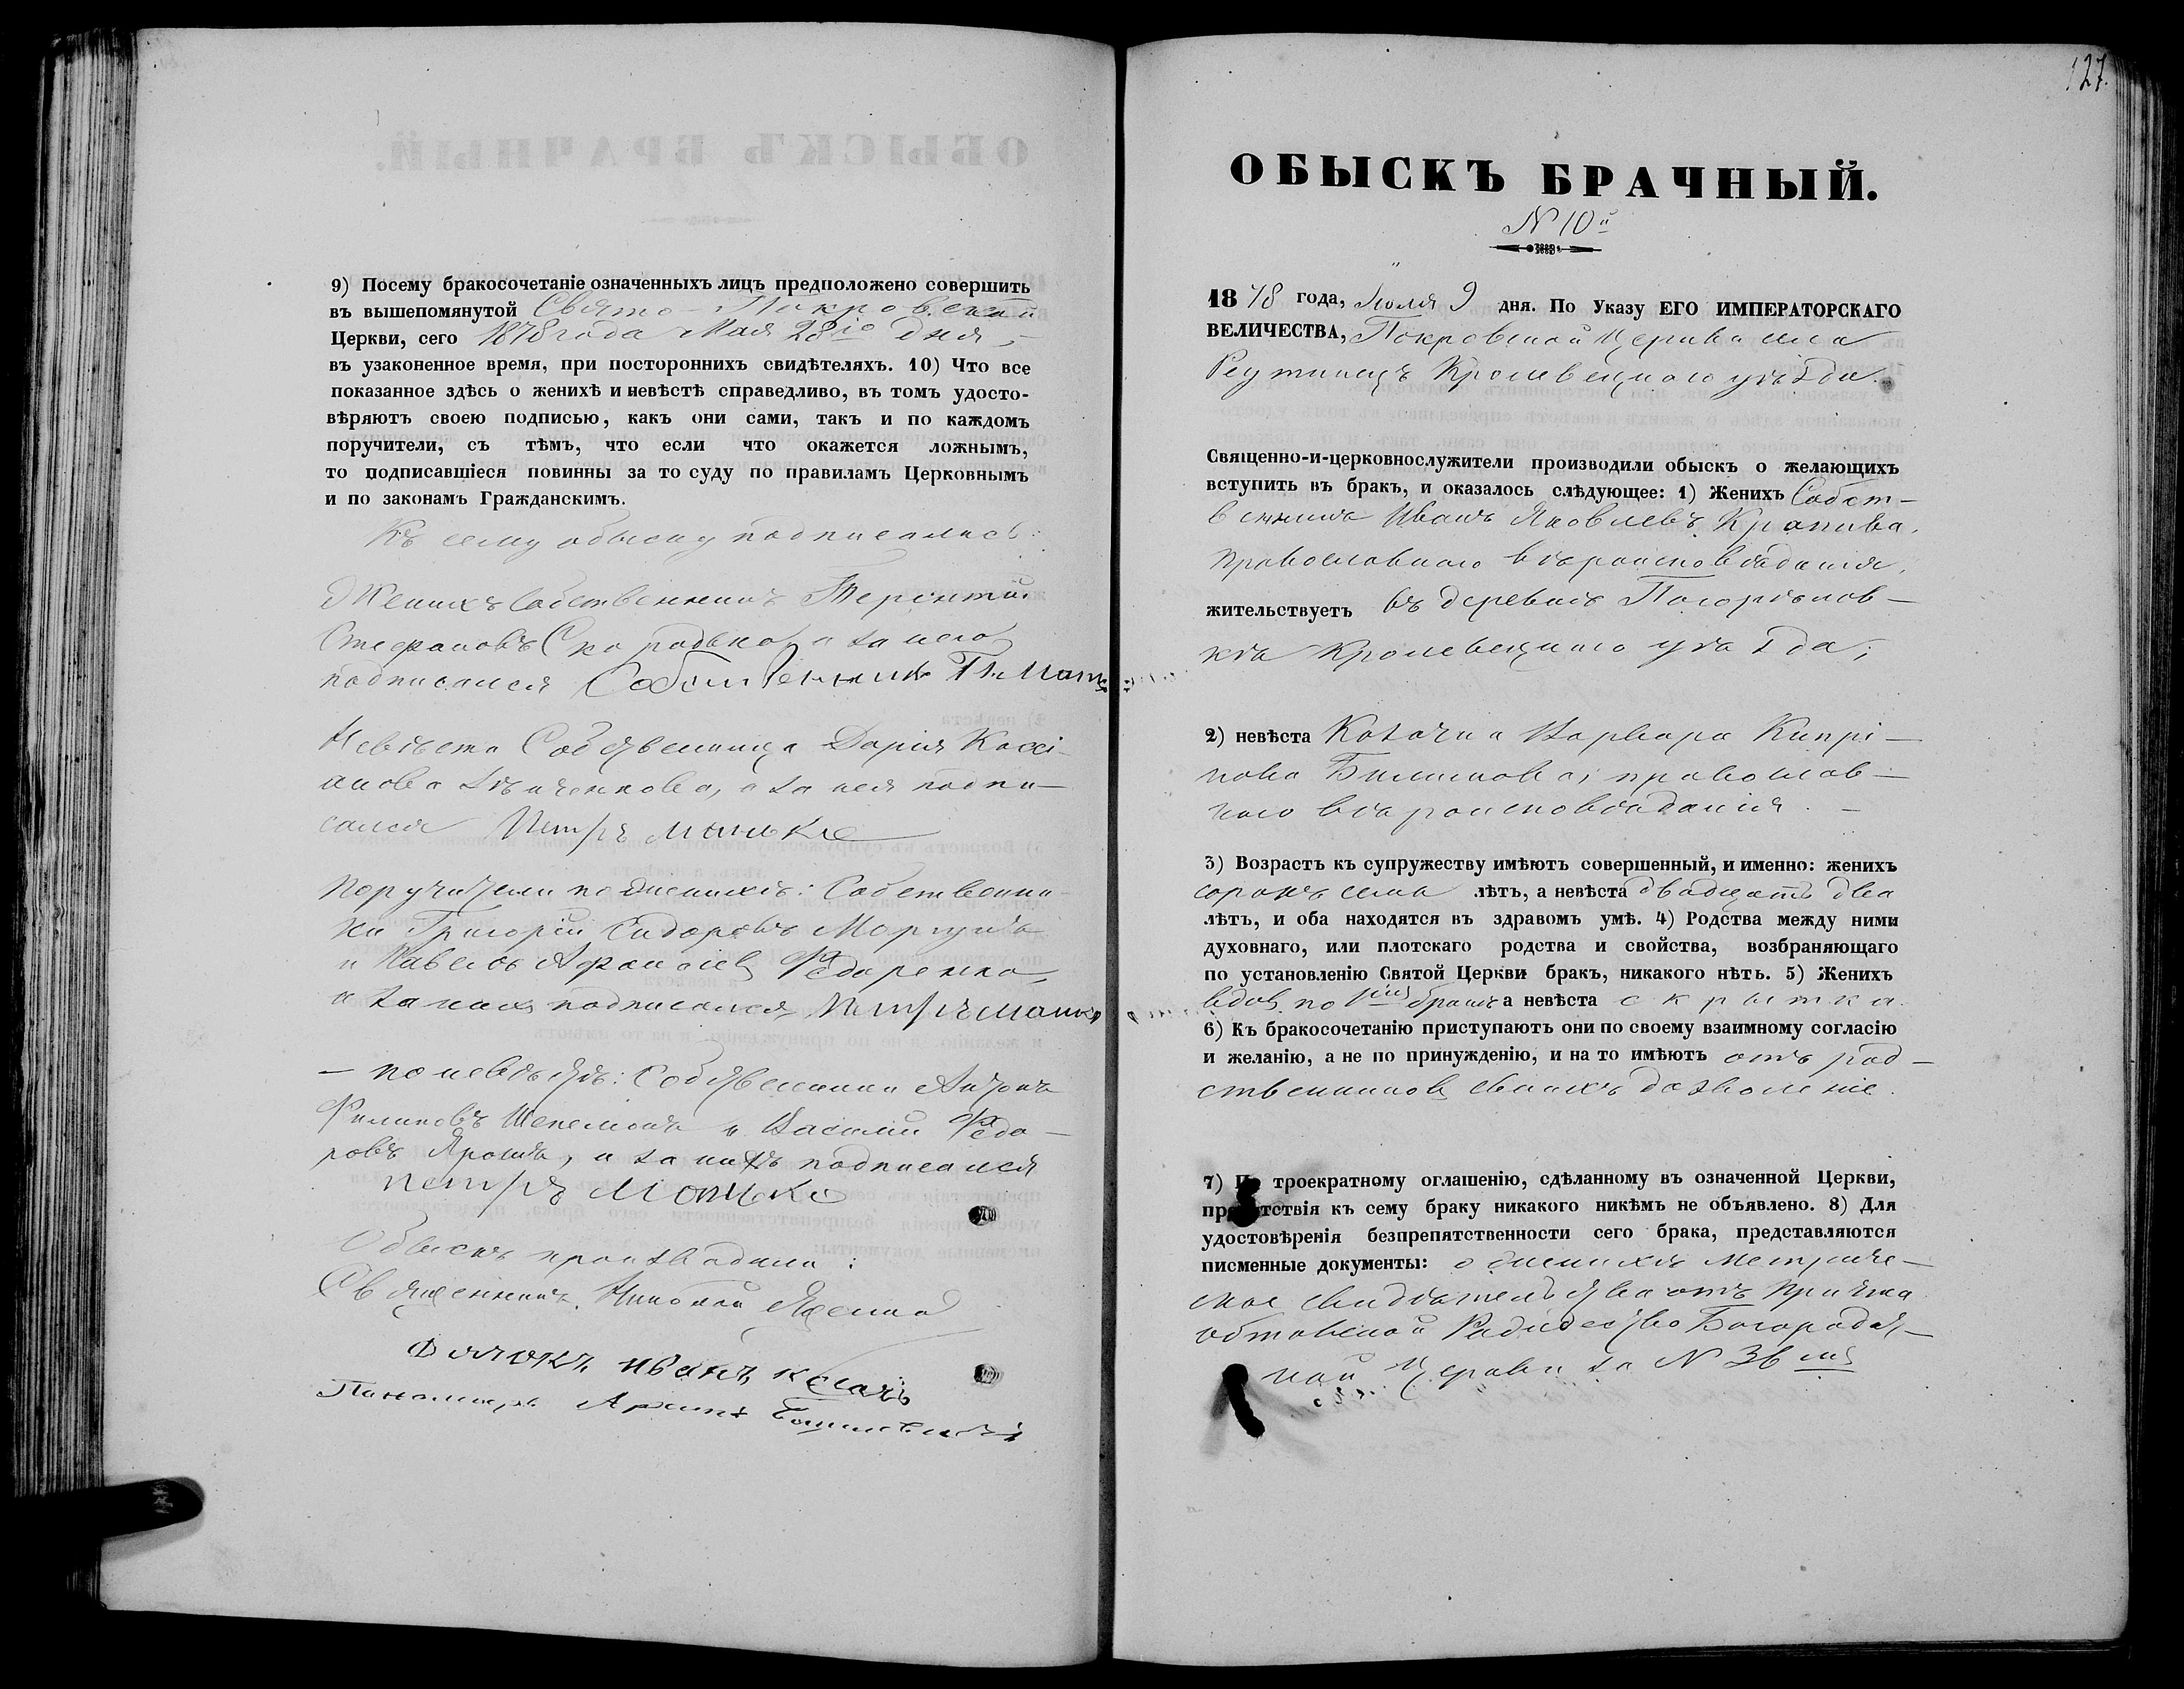 9) Посему бракосочетаніе означенныхъ лицъ предположено совершить
въ вышепомянутой Свято-Покровской
Церкви, сего 1878 года Мая 28го дня,
въ узаконенное время, при постороннихъ свидѣтеляхъ. 10) Что все
показанное здѣсь о женихѣ и невѣстѣ справедливо, въ томъ удосто-
вѣряютъ своею подписью, какъ они сами, такъ и по каждомъ
поручители, съ тѣмъ, что если что окажется ложнымъ,
то подписавшіеся повинны за то суду по правиламъ Церковнымъ
и по законамъ Гражданскимъ.
Къ сему обыску подписались:
Женихъ Собственникъ Терентій
Стефановъ а за него
подписался Собственникъ
Невѣста Собственница Дарія Кассі-
анова а за нея подпи-
сался Петръ Монько
Поручители по женихѣ: Собственни-
ки Григорій Сидоровъ Моргунъ
и Павелъ Афанасіевъ Федоренко,
а за нихъ подписался Петръ Монько
— по невѣстѣ: Собственники Антонъ
Филиповъ и Василій Федо-
ровъ Ярошъ, а за нихъ подписался
Петръ Монько
Обыскъ производили:
Священникъ Николай
Дьячокъ Иванъ
Пономарь
127.
ОБЫСКЪ БРАЧНЫЙ.
N 10й
1878 года, Іюля 9 дня. По Указу ЕГО ИМПЕРАТОРСКАГО
ВЕЛИЧЕСТВА, Покровской Церкви села
Реутинецъ Кролевецкаго уѣзда.
Священно-и-церковнослужители производили обыскъ о желающихъ
вступить въ бракъ, и оказалось слѣдующее: 1) Женихъ Собст-
венникъ Иванъ Яковлевъ Кропива,
православнаго вѣроисповѣданія,
жительствуетъ въ деревнѣ Погорѣлов-
кѣ Кролевецкаго уѣзда;
2) невѣста Козачка Варвара Кипрі-
нова православ-
наго вѣроисповѣданія. —
3) Возрастъ къ супружеству имѣютъ совершенный, и именно: женихъ
сорокъ семь лѣтъ, а невѣста двадцать два
лѣтъ, и оба находятся въ здравомъ умѣ. 4) Родства между ними
духовнаго, или плотскаго родства и свойства, возбраняющаго
по установленію Святой Церкви бракъ, никакого нѣтъ. 5) Женихъ
вдовъ по бракѣ а невѣста скрытка.
6) Къ бракосочетанію приступаютъ они по своему взаимному согласію
и желанію, а не по принужденію, и на то имѣютъ отъ род-
ственниковъ своихъ дозволеніе.
7) По троекратному оглашенію, сдѣланному въ означенной Церкви,
препятствія къ сему браку никакого никѣмъ не объявлено. 8) Для
удостовѣренія безпрепятственности сего брака, представляются
писменные документы: о женихѣ Метриче-
ское свидѣтельство отъ Причта
Рождество Богородич-
ной Церкви за N 36мъ